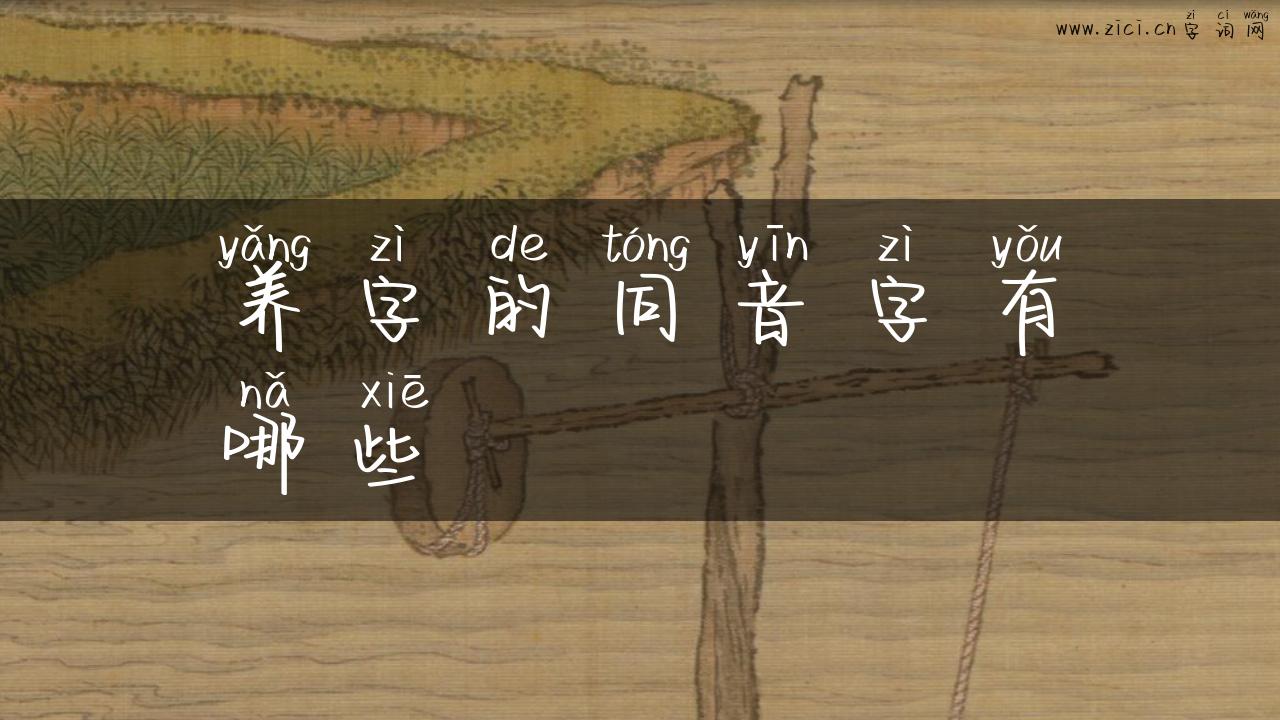 zì cí wǎng
www.zici.cn 字 词 网
yǎng zì de tóng yīn zì yǒu
养 字 的 同 音 字 有
nǎ xiē
哪 些